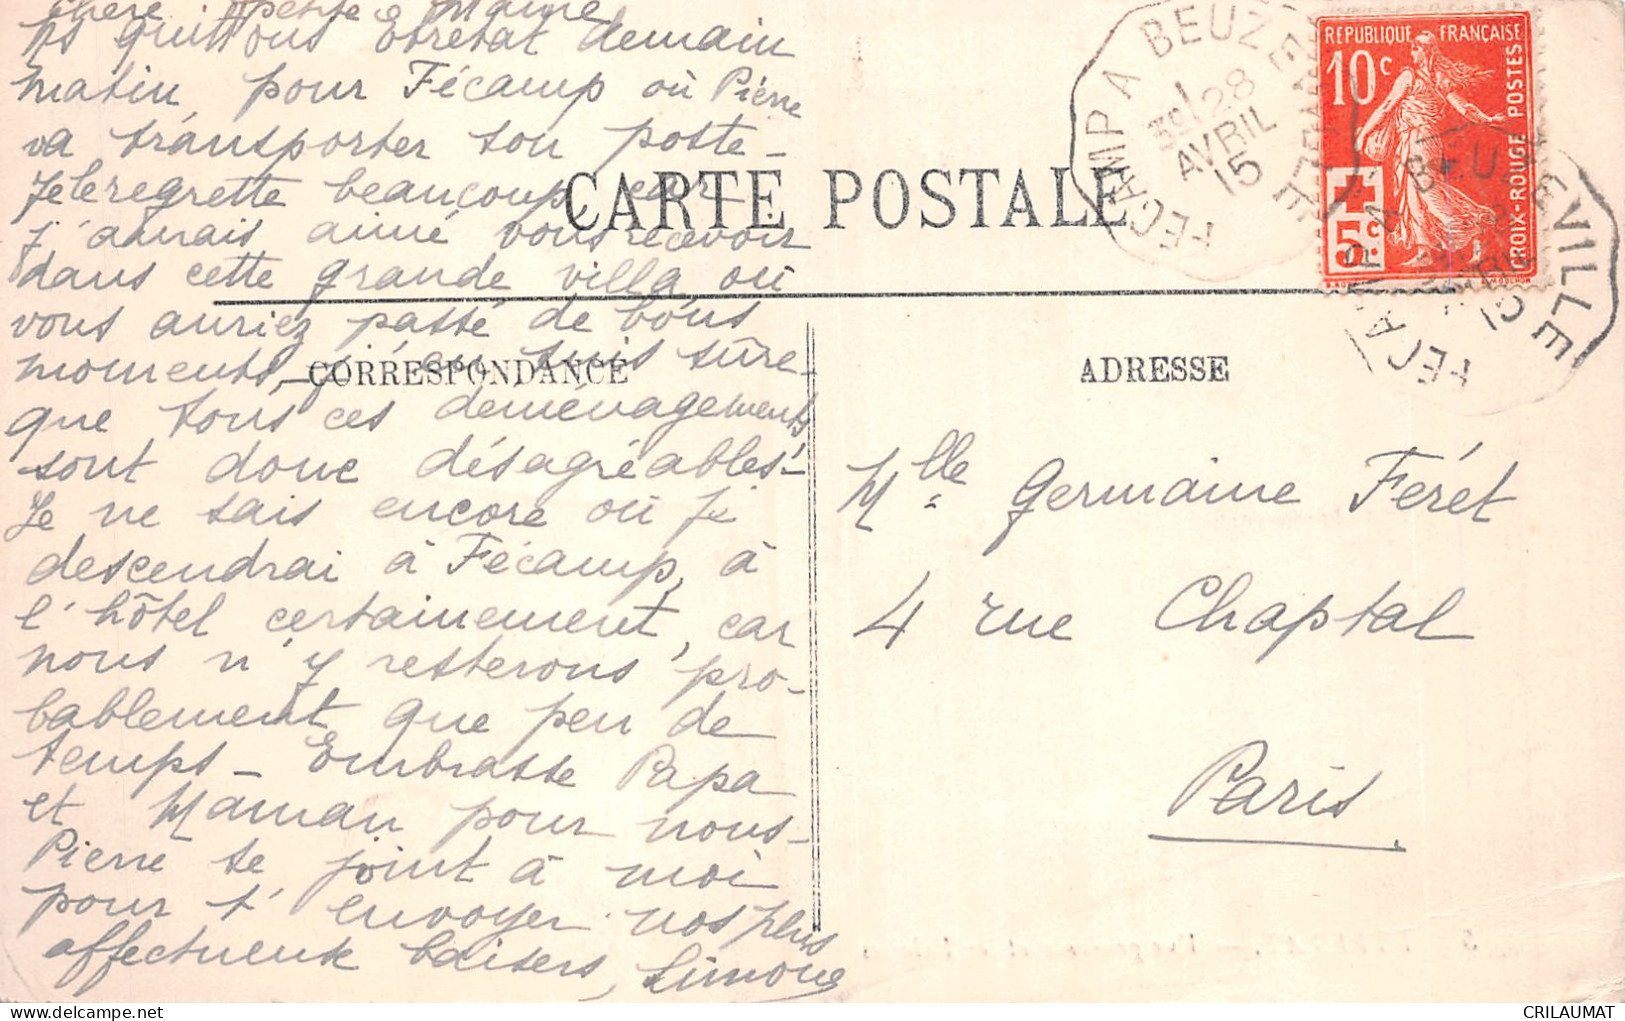 Chère petite Maine
Ns quittons Etretat demain
matin, pour Fécamp où Pierre
va transporter son poste -
Je le regrette beaucoup car
j'aurais aimé vous recevoir
dans cette grande villa où
vous auriez passé de bons
moments, je suis sûre -
que tous ces deménagements
sont donc désagréables -
Je ne sais encore où je
descendrai à Fécamp, à
l'hôtel certainement, car
nous n'y resterons pro-
bablement que peu de
temps - Embrasse Papa
et Maman pour nous -
Pierre se joint à moi
pour t'envoyer nos plus
affectueux baisers, Simone
CARTE POSTALE
CORRESPONDANCE
ADRESSE
Mlle Germaine Féret
4 rue Chaptal
Paris
REPUBLIQUE FRANÇAISE
10c
5c
POSTES
CROIX-ROUGE
FECAMP A BEUZEVILLE
28
AVRIL
15
FECAMP A BEUZEVILLE
AVRIL
15
CRILAUMAT